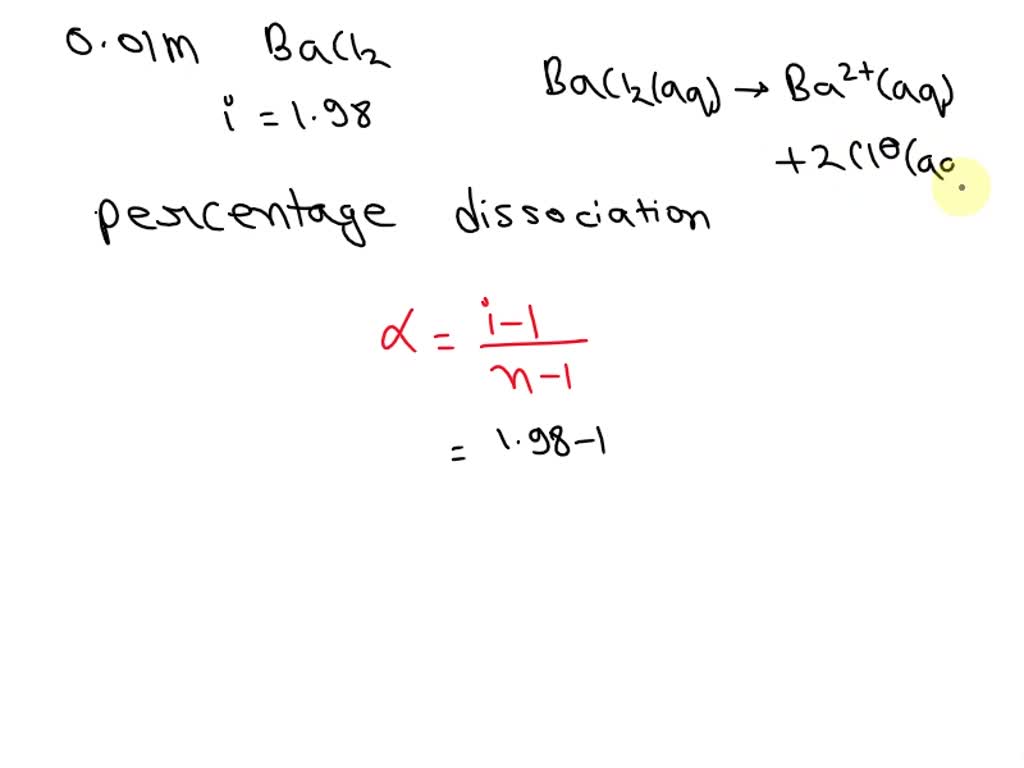 0.01m BaCl2
i = 1.98
BaCl2(aq) → Ba2+(aq)
+ 2Cl⊖(aq
percentage dissociation
α = i-1
n-1
= 1.98-1